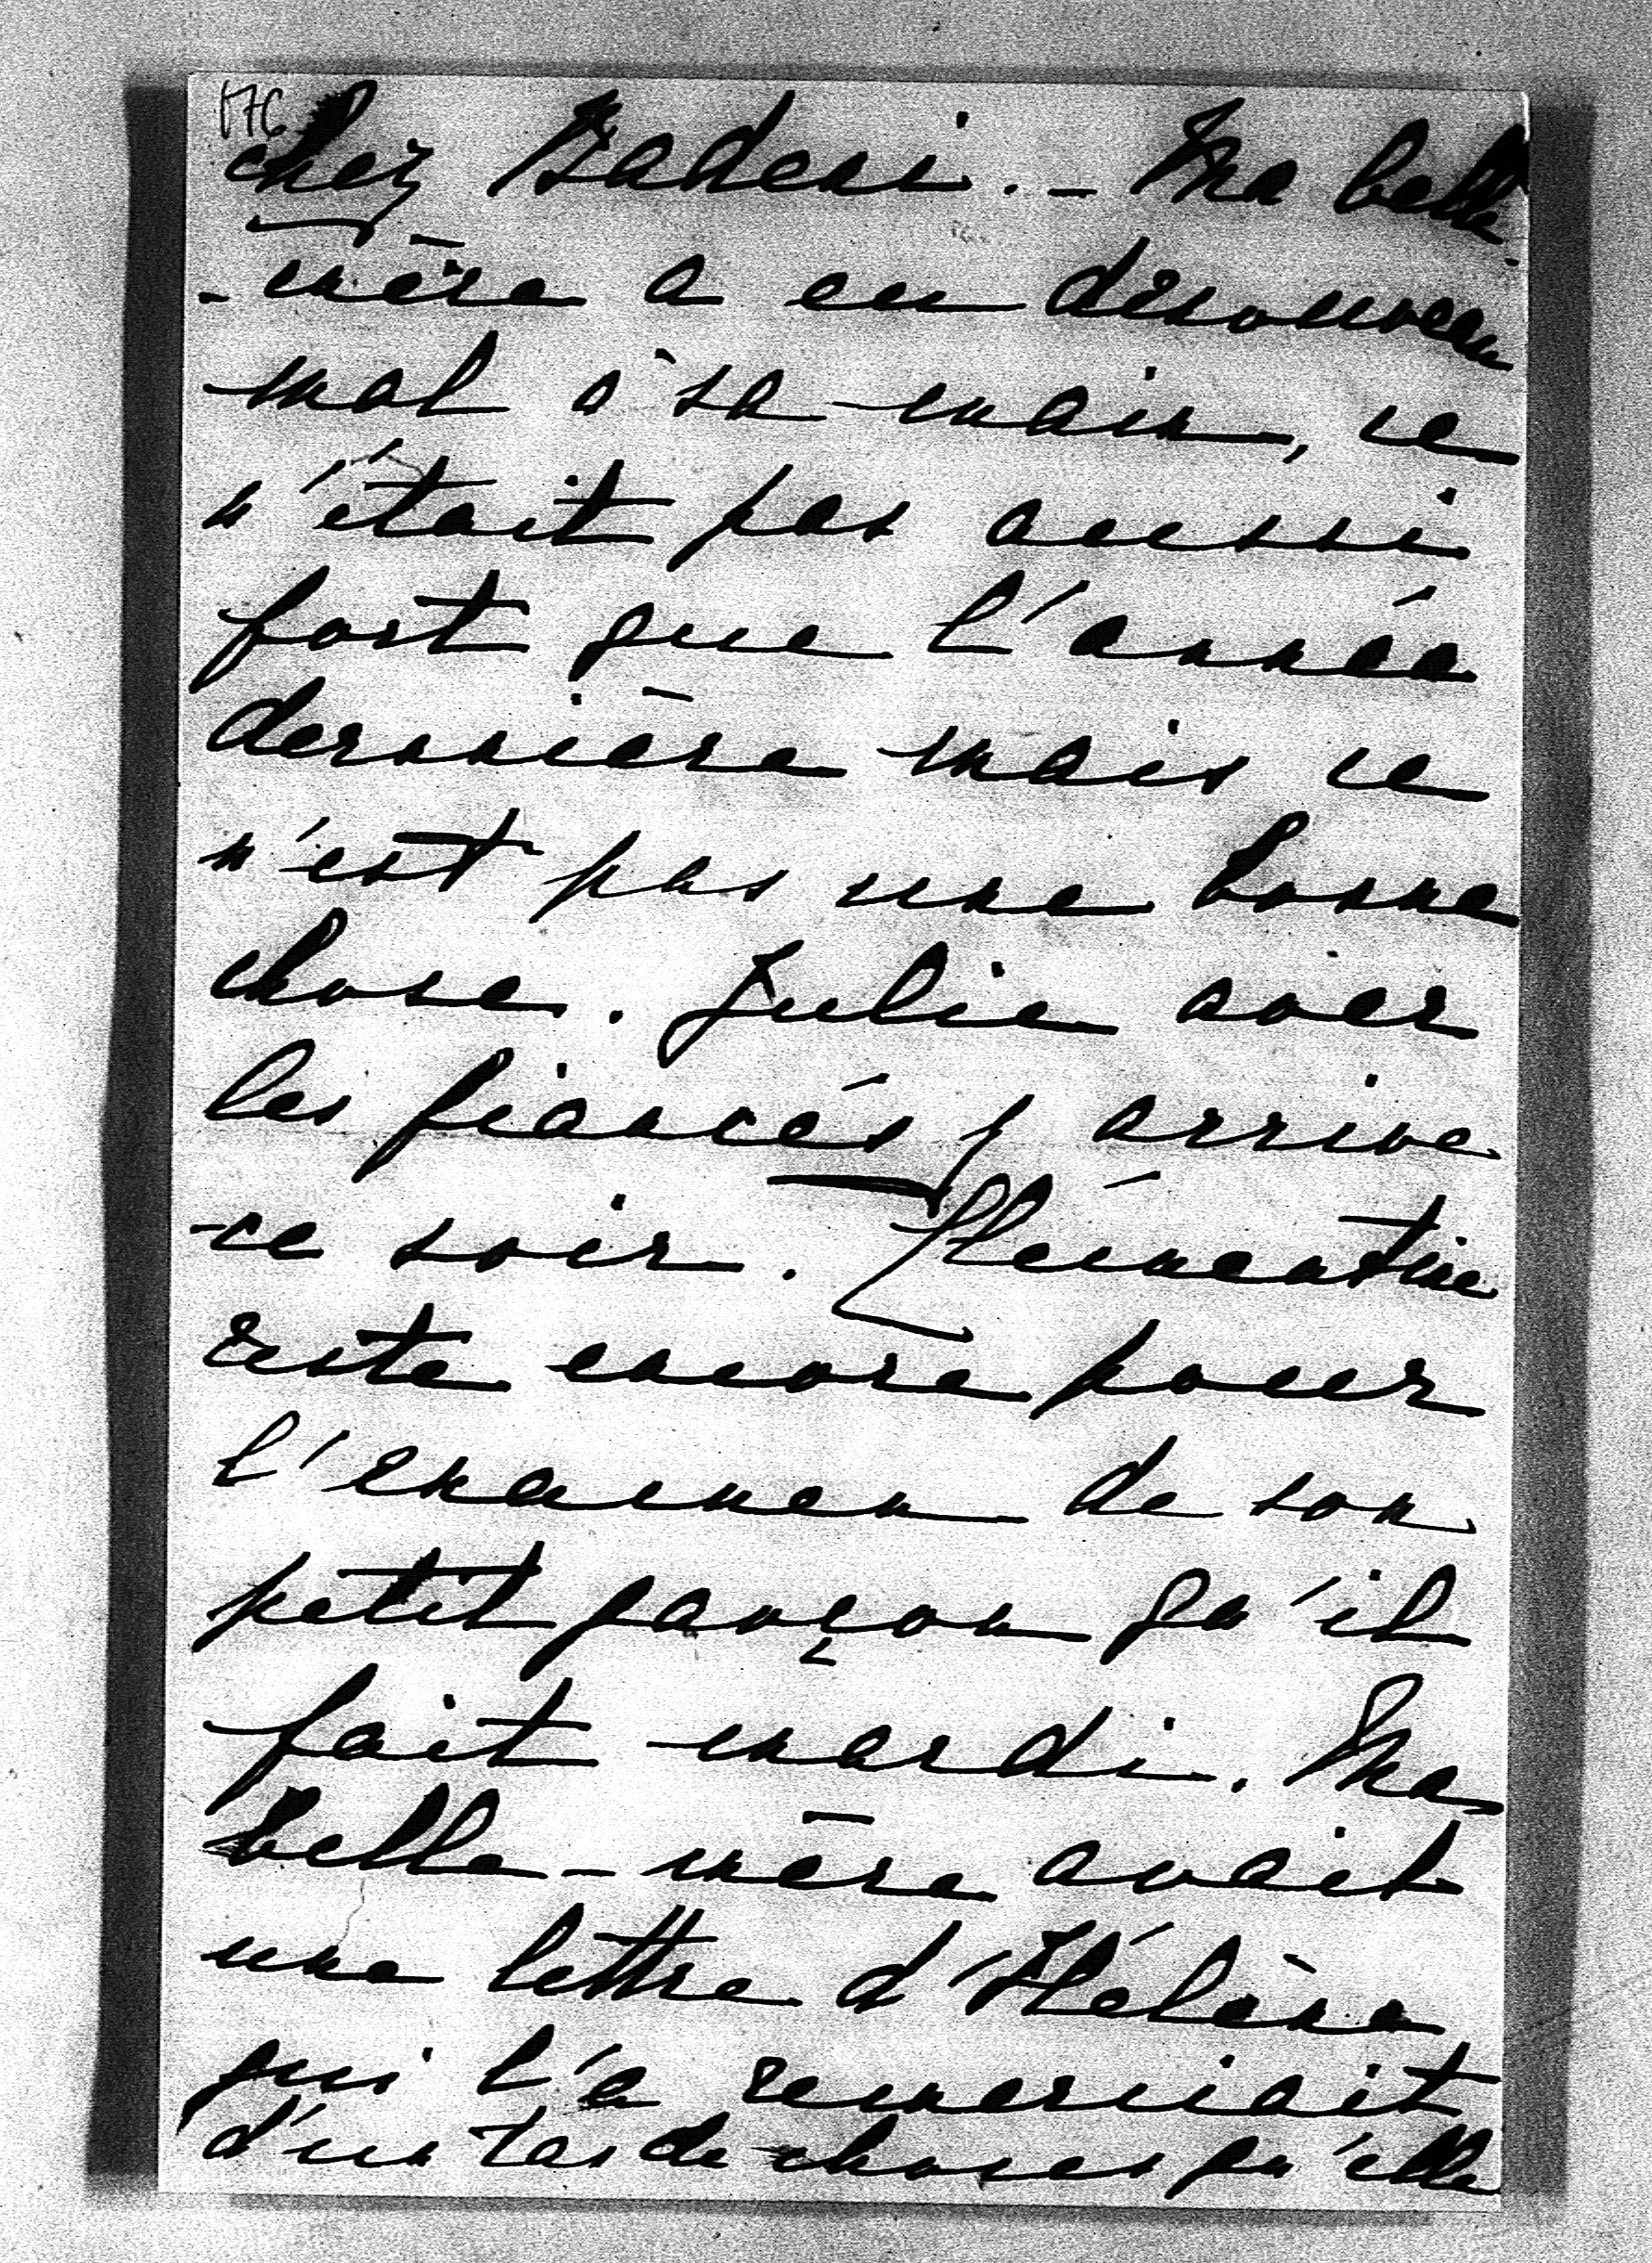 176
chez Hadeni. - Ma belle-
-mère a eu dénouveau
mal à sa main, ce
n'était pas aussi
fort que l'année
dernière mais ce
n'est pas une bonne
chose. Julie avec
les fiancés y arrive
ce soir. Clémentine
reste encore pour
l'examen de son
petit garçon qu'il
fait mardi. Ma
belle-mère avait
une lettre d'Hélène
qui l'a remerciait
d'un tas de choses qu'elle